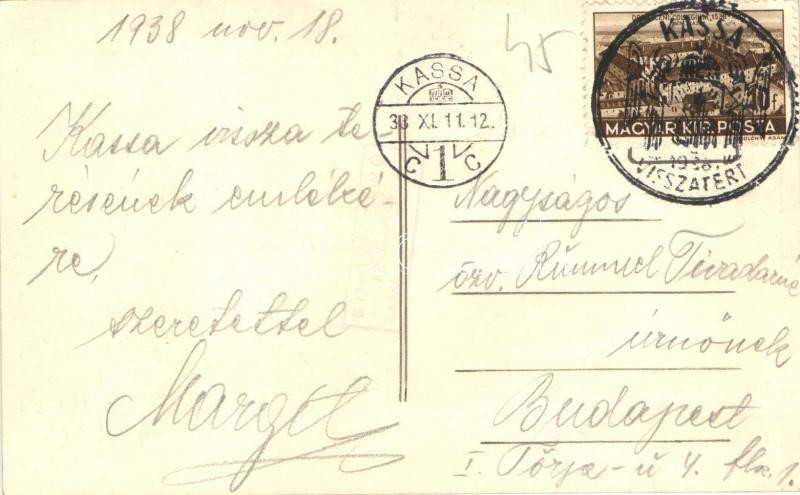 1938 nov. 18.
45
Kassa vissza té-
résének emléké-
re,
szeretettel
Margit
KASSA
38 XI. 11. 12.
C V 1 V C
MAGYAR KIR. POSTA
KASSA
1938.
VISSZATÉRT
Nagyságos
özv. Rümmel Tivadarné
úrnőnek
Budapest
I. Tőrja-u 4. flz. 1.